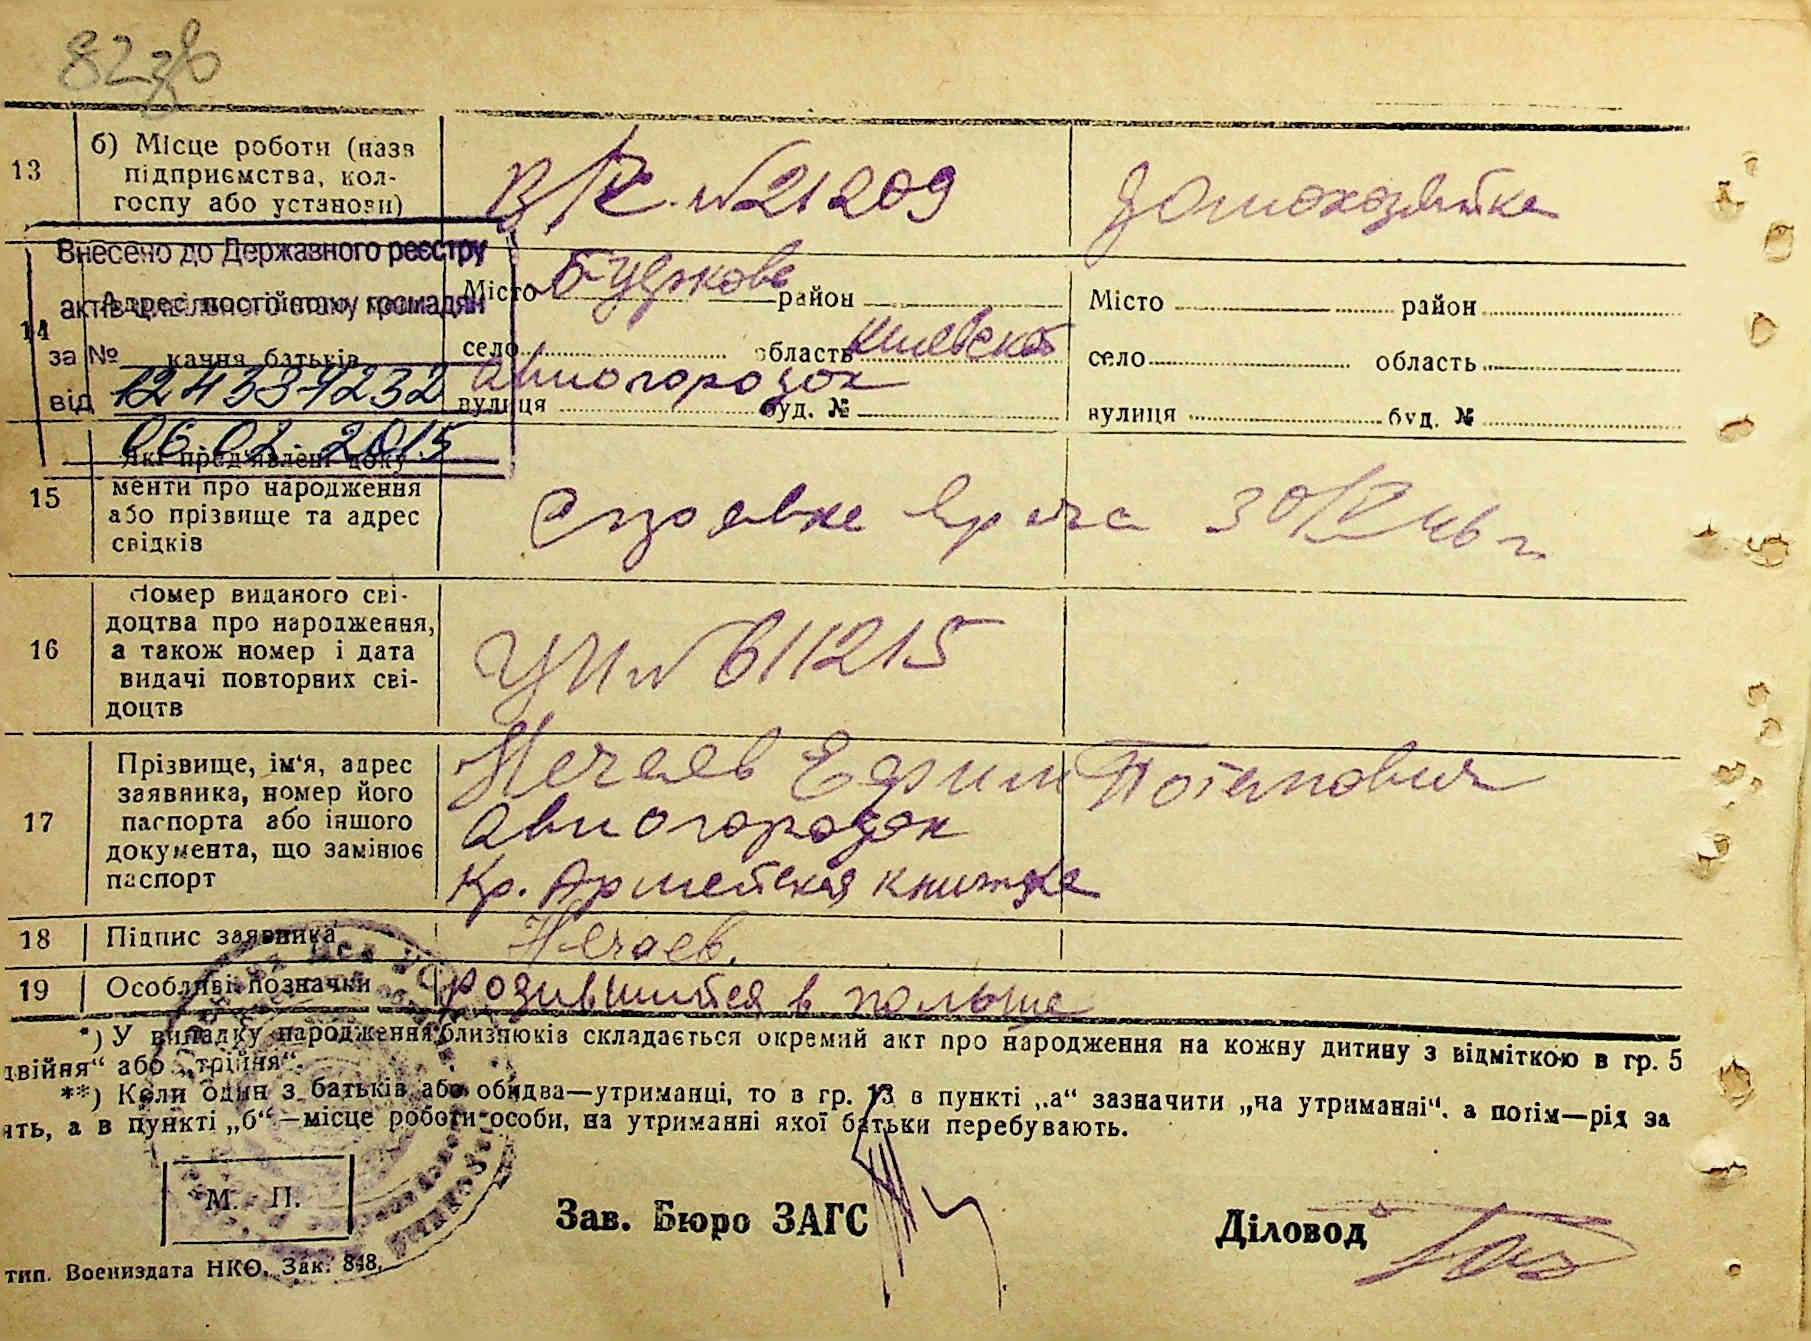 82зв
13
б) Місце роботи (назв
підприємства, кол-
госпу або установи)
В/Ч №21209
Домохозяйка
Внесено до Державного реєстру
актів цивільного стану громадян
за №
124334232
від
06.02.2015
14
Адрес постійного
кання батьків
Місто Б-Церковь район
село область Киевская
Авиогородок
вулиця буд. №
Місто район
село область
вулиця буд. №
15
Які пред'явлені доку
менти про народження
або прізвище та адрес
свідків
Справка врача 30/IV 46 г.
16
Номер виданого сві-
доцтва про народження,
а також номер і дата
видачі повторних сві-
доцтв
№ 611215
17
Прізвище, ім'я, адрес
заявника, номер його
паспорта або іншого
документа, що замінює
паспорт
Нечаев Ефим Потапович
Авиогородок
Кр. Армейская книжка
18
Підпис заявника
Нечаев.
19
Особливі позначки
родившийся в польше
*) У випадку народження близнюків складається окремий акт про народження на кожну дитину з відміткою в гр. 5
двійня“ або „трійня“.
**) Коли один з батьків або обидва—утриманці, то в гр. 13 в пункті „а“ зазначити „на утриманні“, а потім—рід за
ять, а в пункті „б“—місце роботи особи, на утриманні якої батьки перебувають.
М. П.
Зав. Бюро ЗАГС
Діловод
тип. Воениздата НКО. Зак. 848.